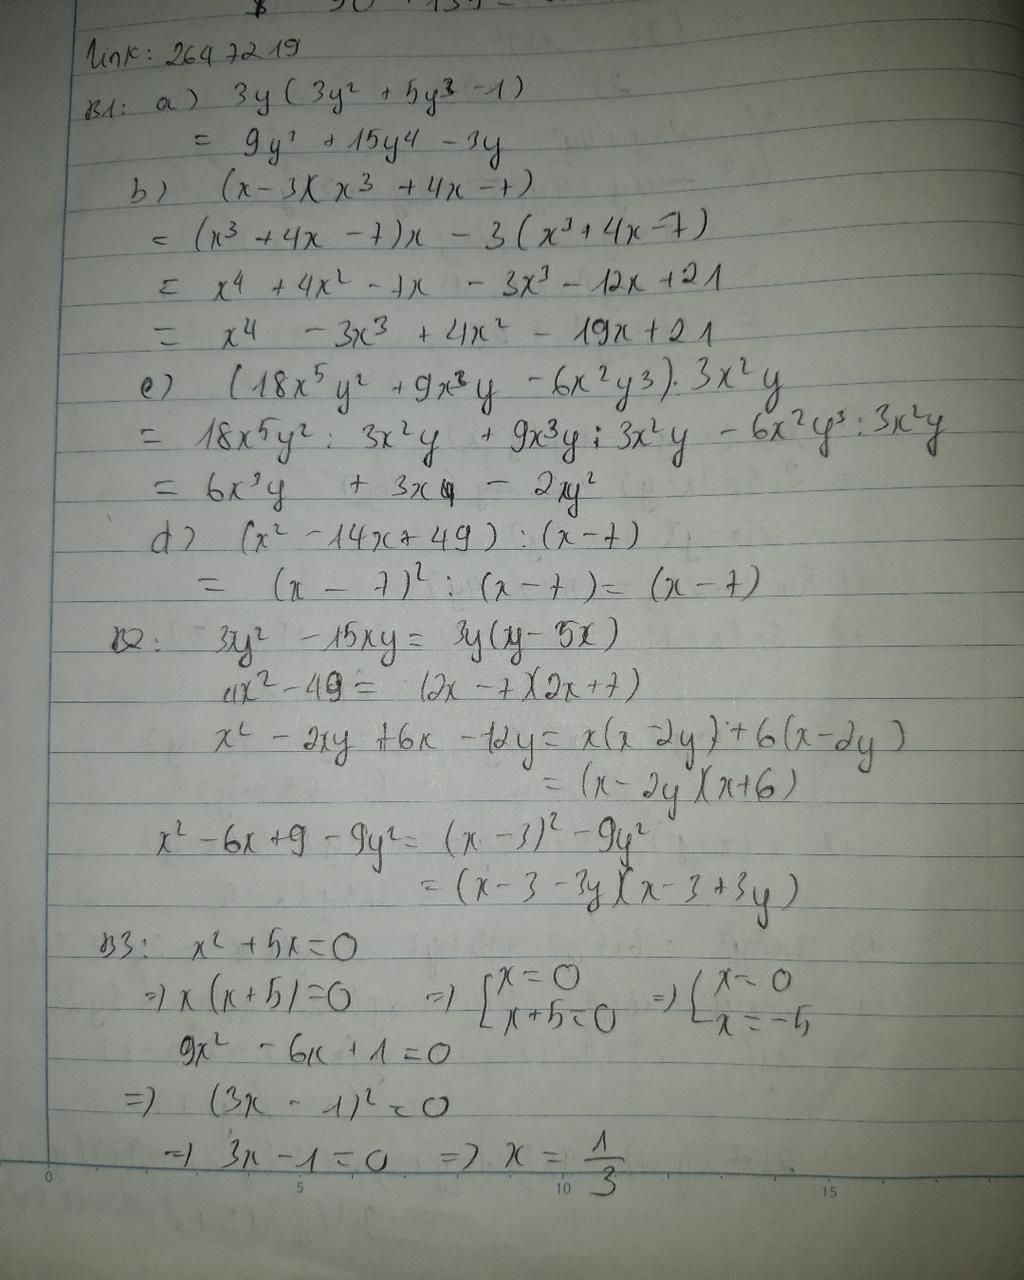 link: 2647219
B1: a) 3y(3y² + 5y³ - 1)
= 9y³ + 15y4 - 3y
b) (x - 3)(x3 + 4x - 7)
= (x³ + 4x - 7)x - 3(x³ + 4x - 7)
= x4 + 4x² - 7x - 3x³ - 12x + 21
= x4 - 3x3 + 4x² - 19x + 21
c) (18x5y² + 9x3y - 6x²y3) : 3x²y
= 18x5y² : 3x²y + 9x3y : 3x²y - 6x²y³ : 3x²y
= 6x³y + 3x - 2xy²
d) (x² - 14x + 49) : (x - 7)
= (x - 7)² : (x - 7) = (x - 7)
B2: 3y² - 15xy = 3y(y - 5x)
4x² - 49 = (2x - 7)(2x + 7)
x² - 2xy + 6x - 12y = x(x - 2y) + 6(x - 2y)
= (x - 2y)(x + 6)
x² - 6x + 9 - 9y² = (x - 3)² - 9y²
= (x - 3 - 3y)(x - 3 + 3y)
B3: x² + 5x = 0
=> x(x + 5) = 0 => [x = 0 => [x = 0
x + 5 = 0 x = -5
9x² - 6x + 1 = 0
=> (3x - 1)² = 0
=> 3x - 1 = 0 => x = 1/3
0 5 10 15